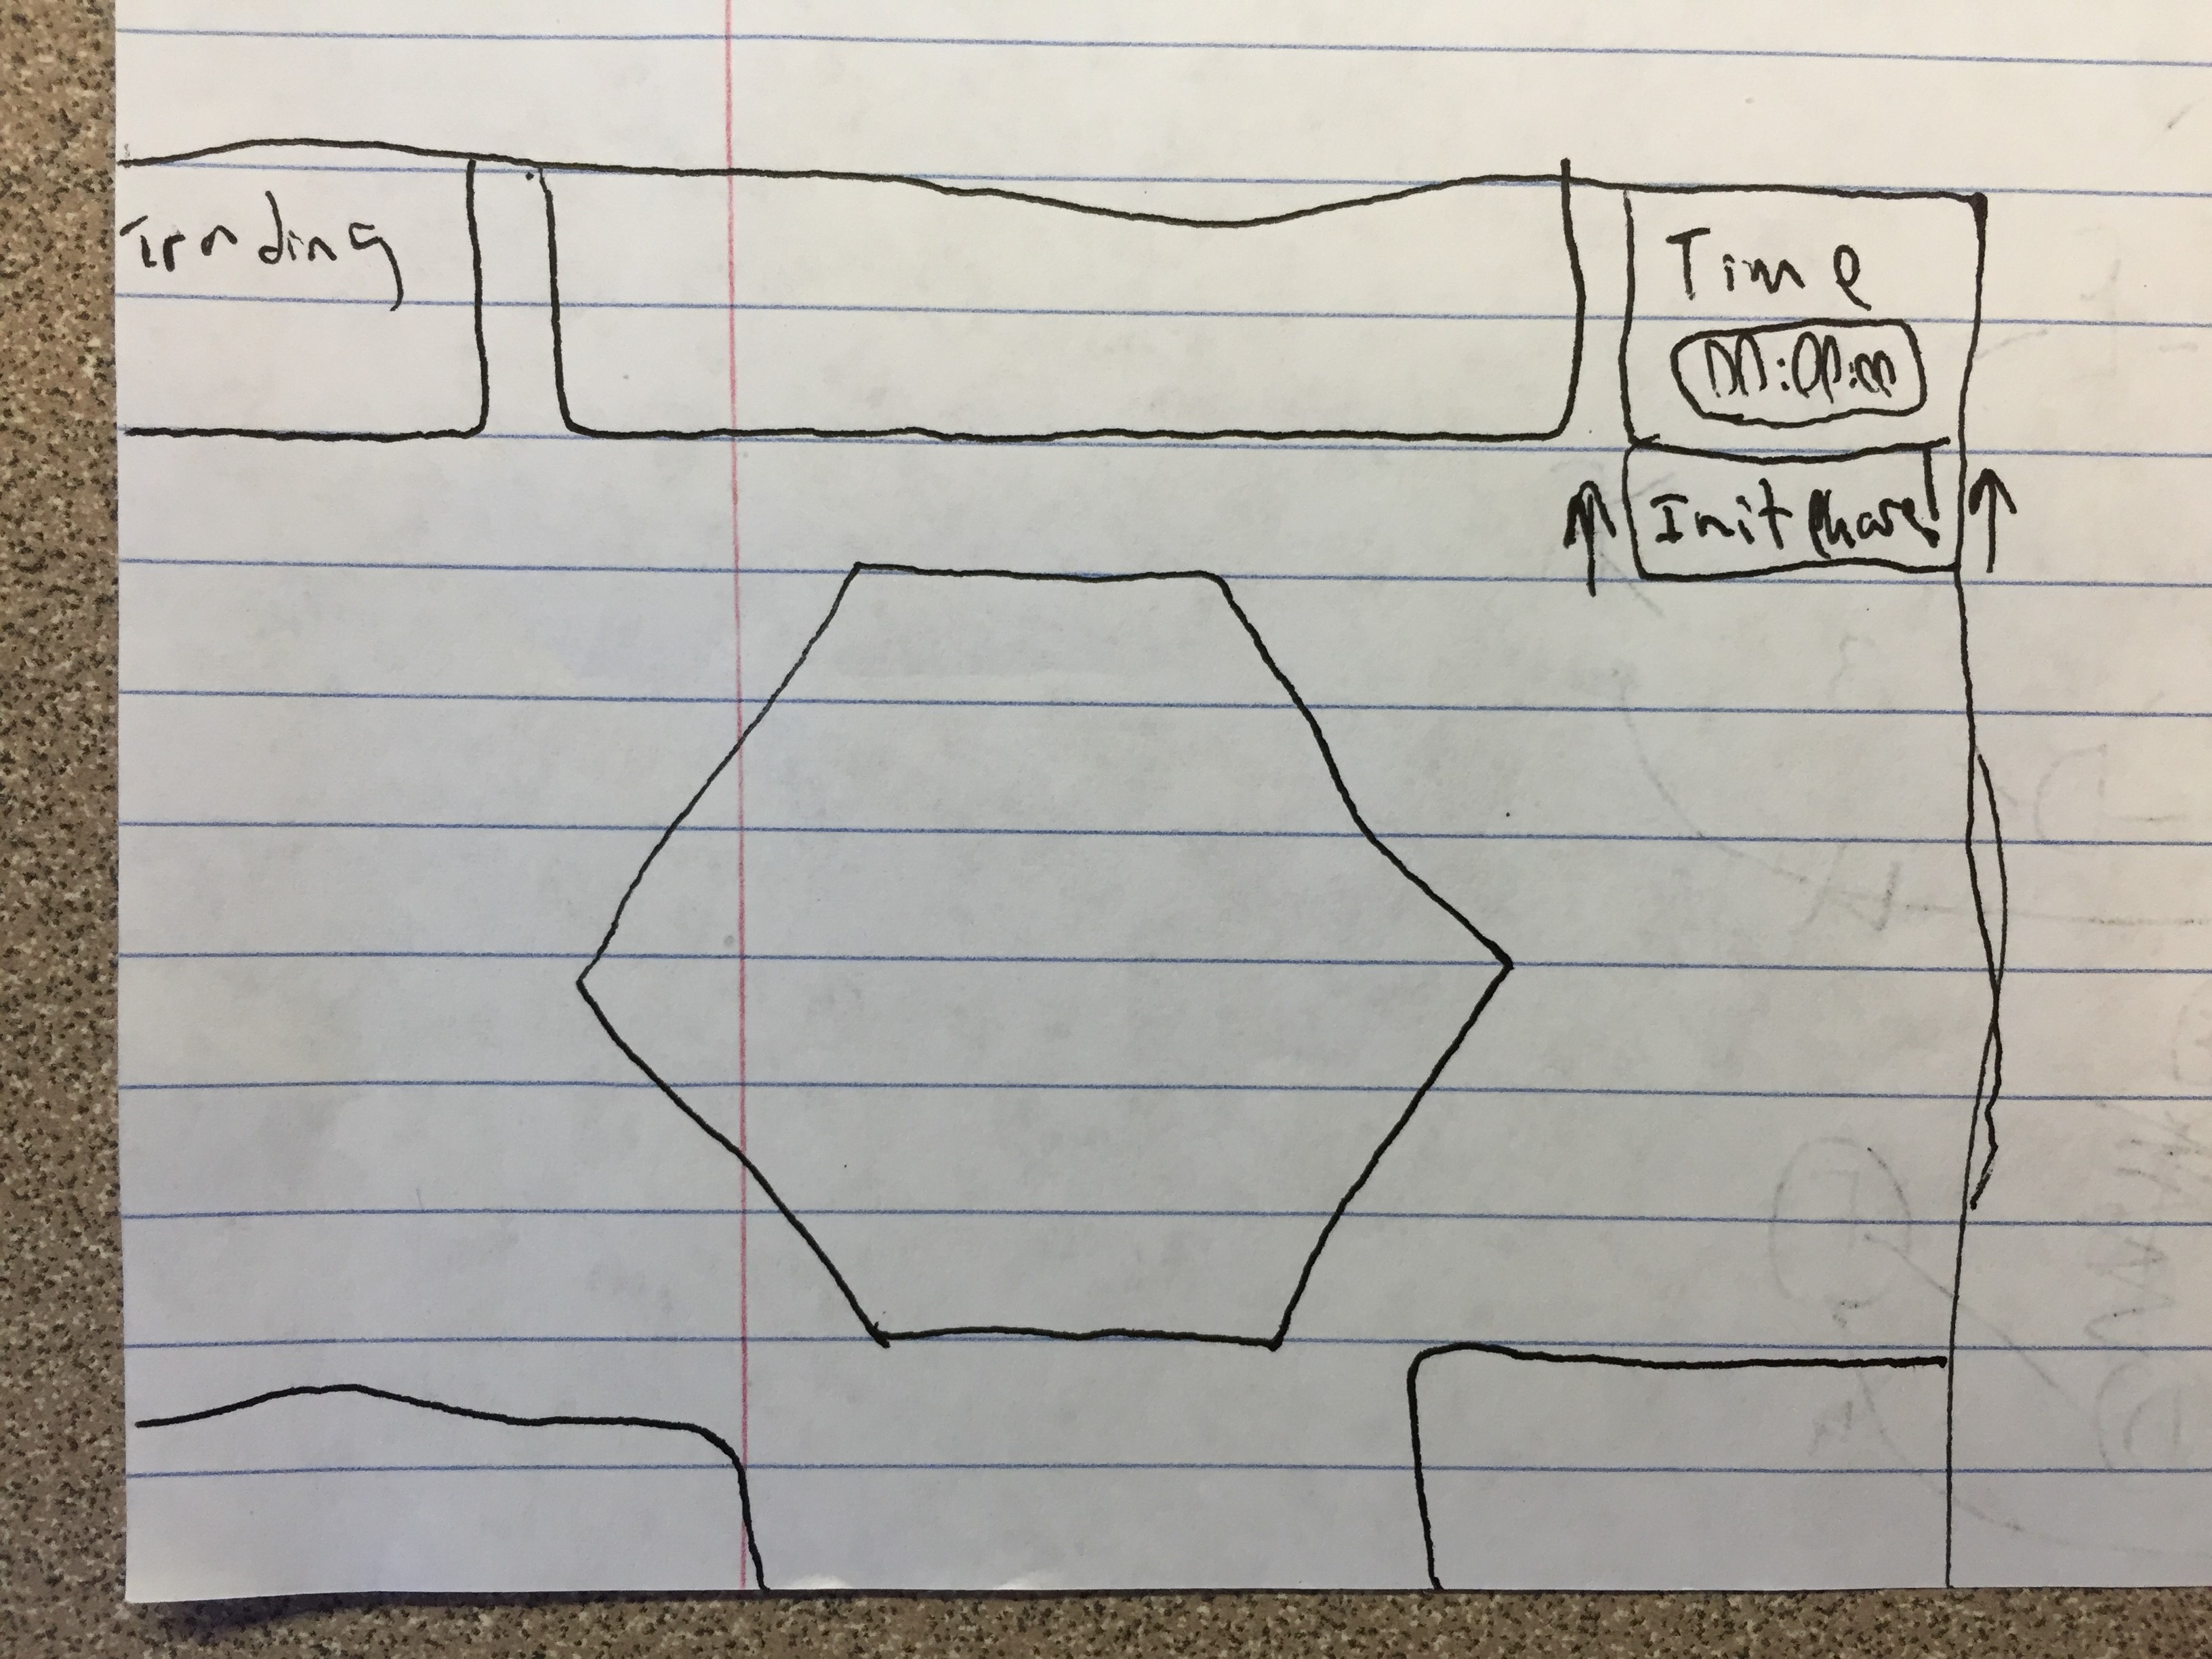 Trading
Time
00:00:00
Init Phase!